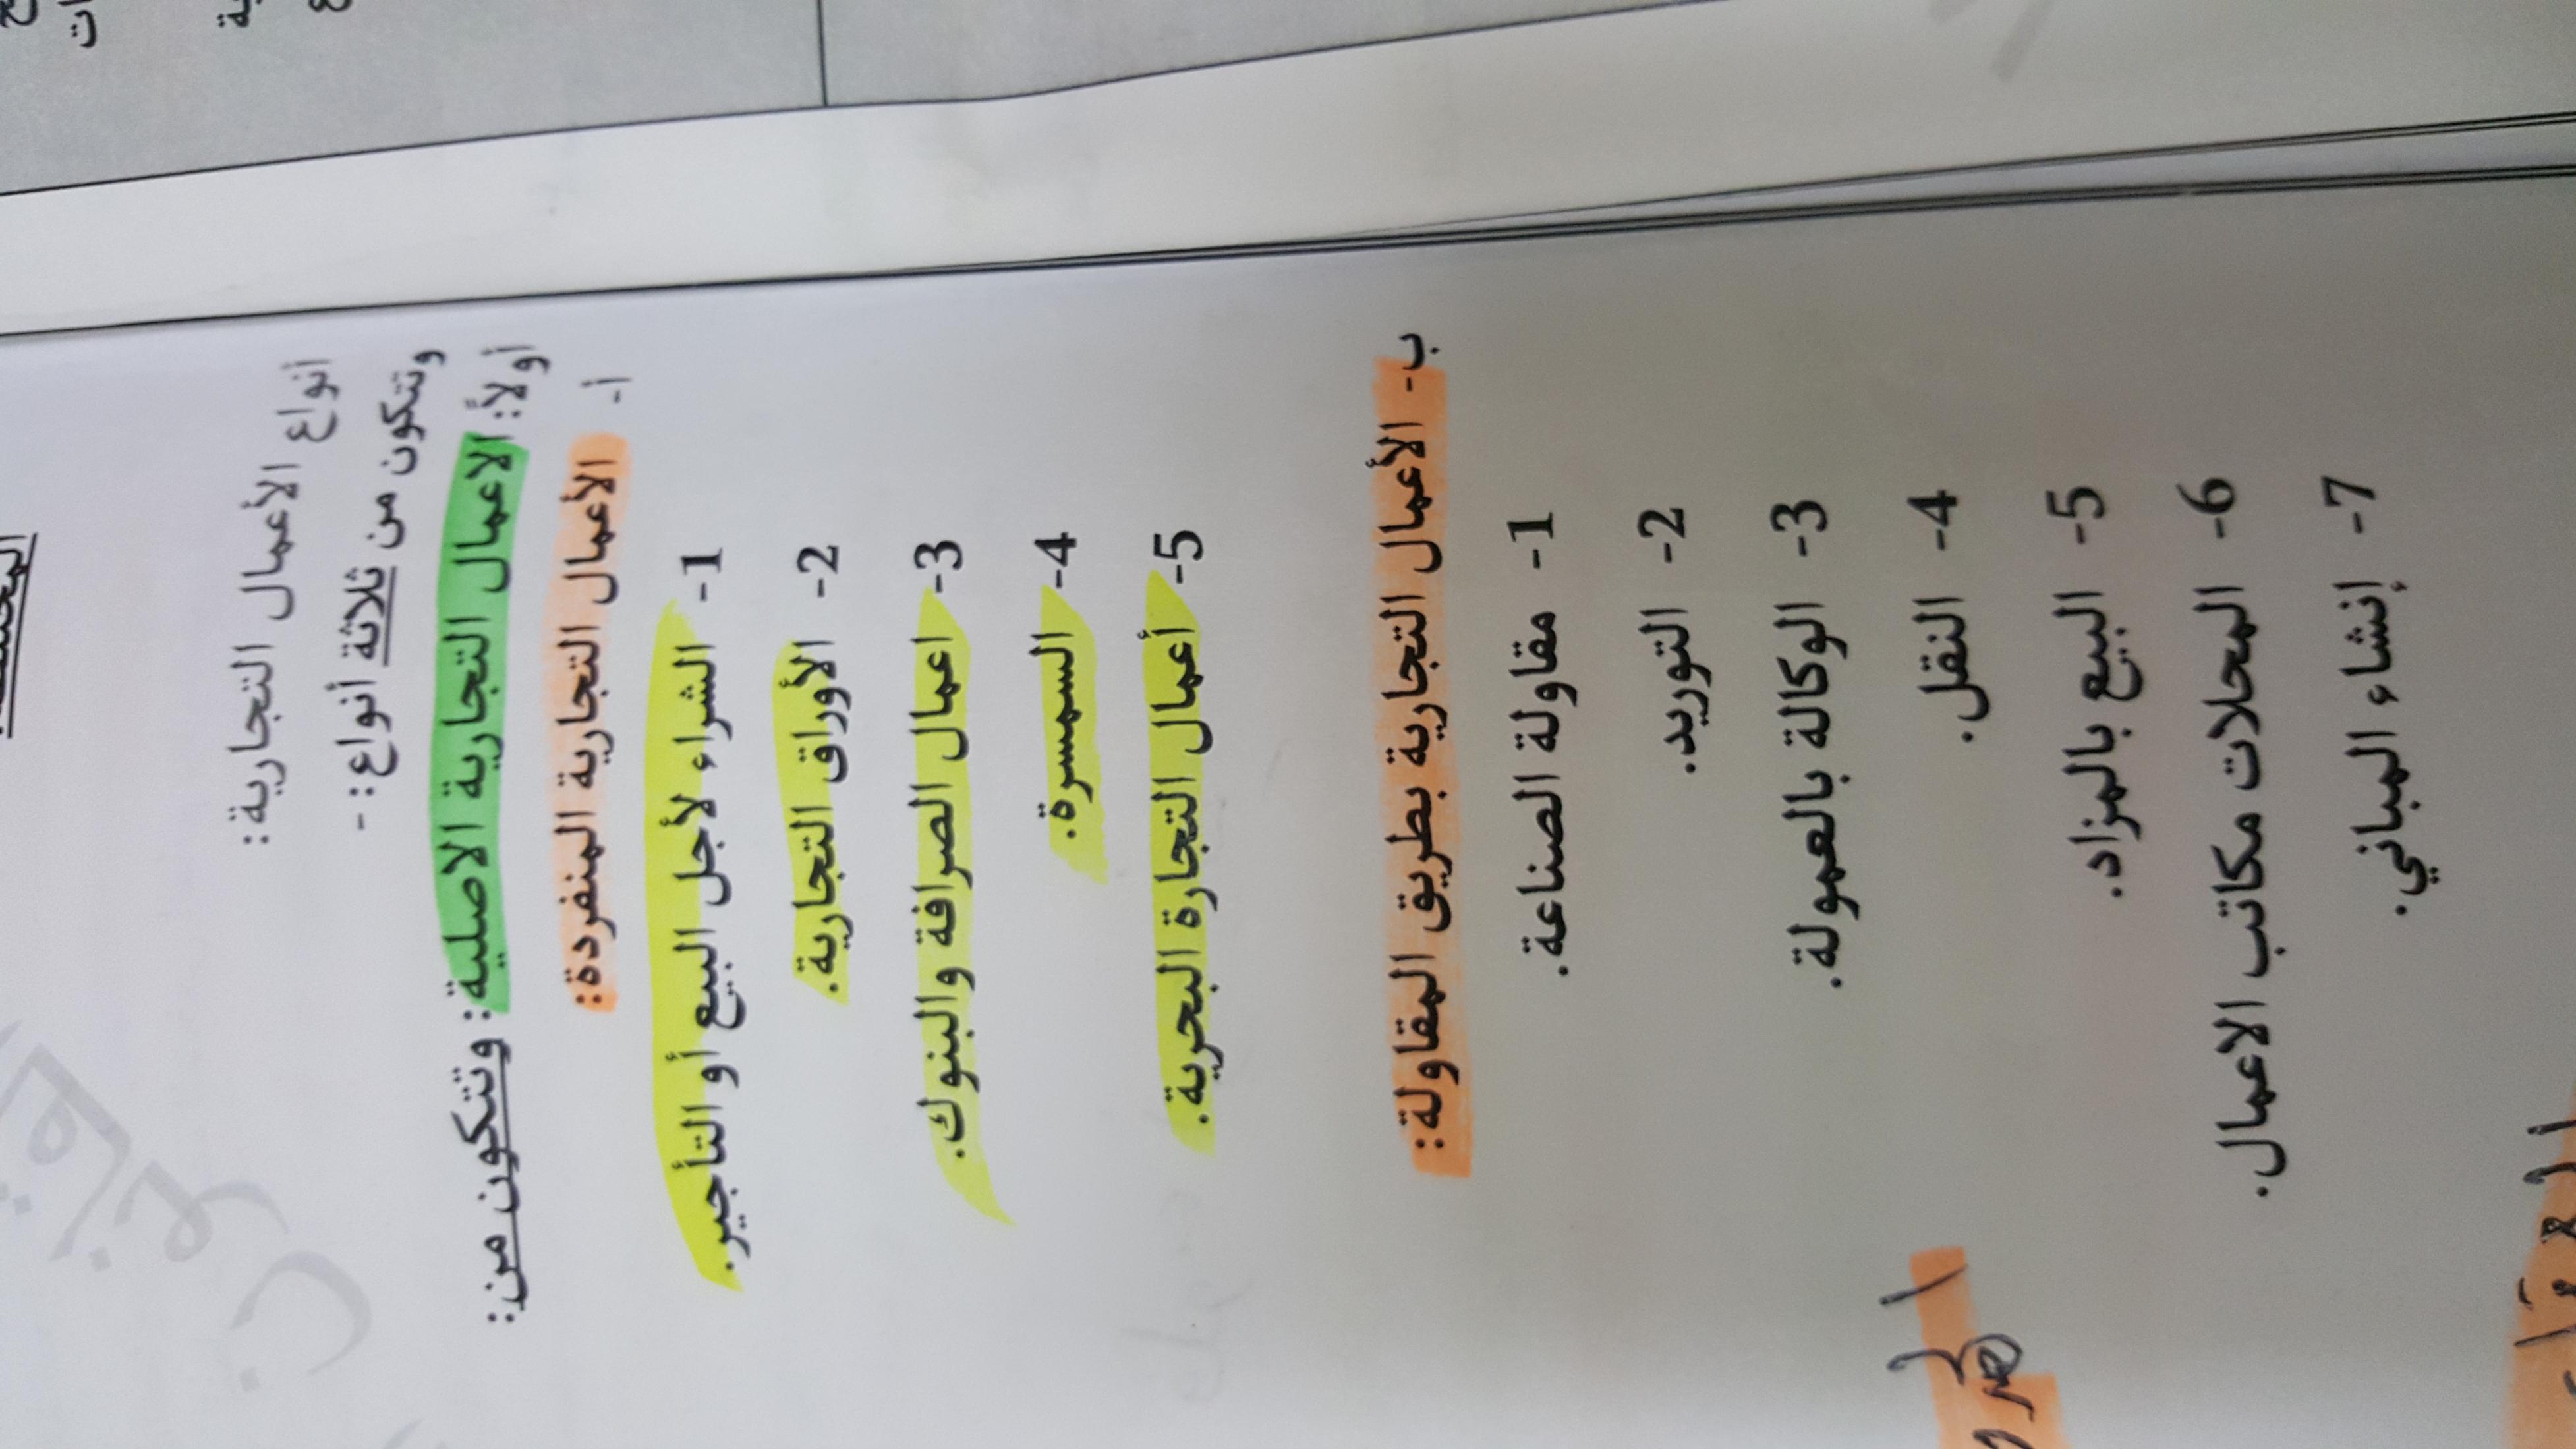 أنواع الأعمال التجارية:
وتتكون من ثلاثة أنواع: -
أولاً: الاعمال التجارية الاصلية: وتتكون من:
أ- الأعمال التجارية المنفردة:
1- الشراء لأجل البيع أو التأجير.
2- الأوراق التجارية.
3- اعمال الصرافة والبنوك.
4- السمسرة.
5- أعمال التجارة البحرية.
ب- الأعمال التجارية بطريق المقاولة:
1- مقاولة الصناعة.
2- التوريد.
3- الوكالة بالعمولة.
4- النقل.
5- البيع بالمزاد.
6- المحلات مكاتب الاعمال.
7- إنشاء المباني.